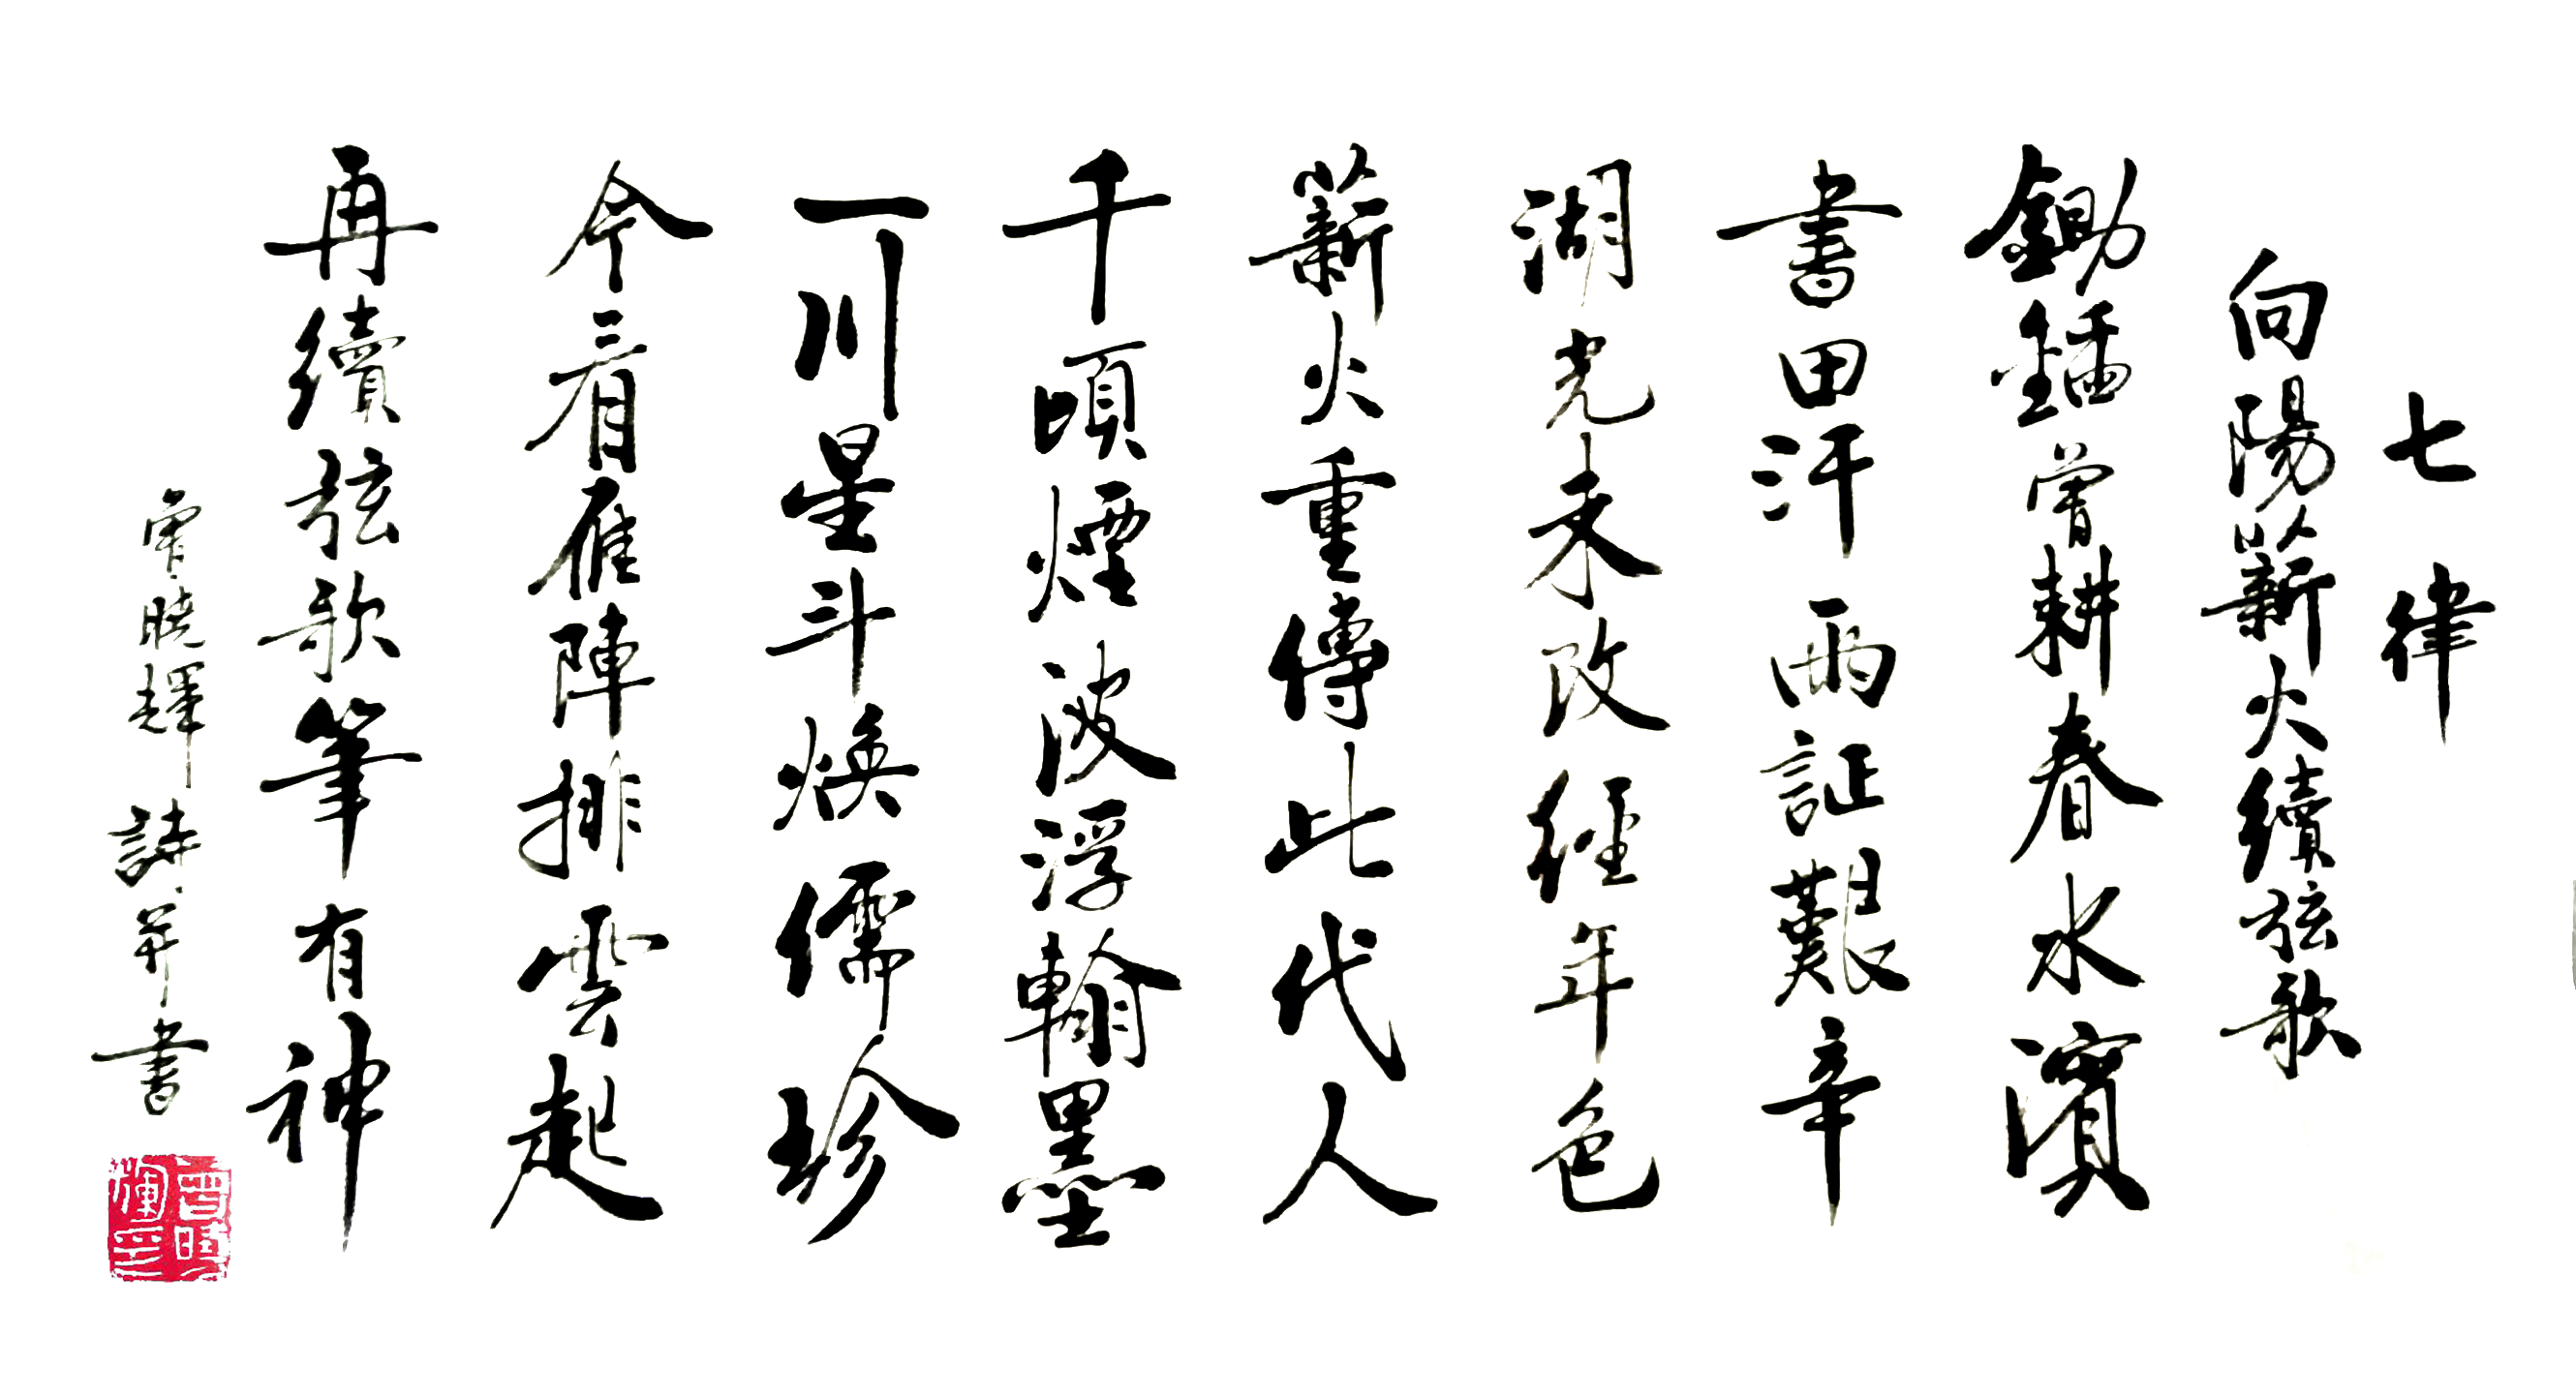 七律
向陽薪火續弦歌
鋤鍤曾耕春水濱
書田汗雨証艱辛
湖光未改經年色
薪火重傳此代人
千頃煙波浮翰墨
一川星斗煥儒珍
今看雁陣排雲起
再續弦歌筆有神
曾曉輝詩并書
曾曉輝印